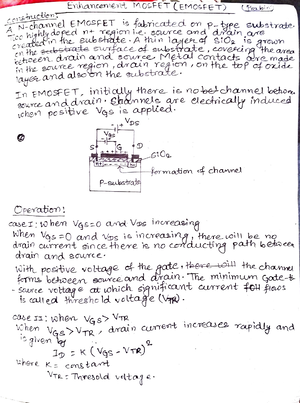 Enhancement MOSFET (EMOSFET)
Construction:
A N-channel EMOSFET is fabricated on p-type substrate.
Two highly doped n+ region i.e. source and drain are
created in the substrate. A thin layer of SiO2 is grown
on the substrate surface of substrate, covering the area
between drain and source. Metal contacts are made
in the source region, drain region, on the top of oxide
layer and also on the substrate.
In EMOSFET, initially there is no channel between
source and drain. Channels are electrically induced
when positive VGS is applied.
VDS
VGS
S G D
SiO2
n+ n+
formation of channel
P-substrate
Operation:
case I: When VGS=0 and VDS increasing
When VGS=0 and VDS is increasing, there will be no
drain current since there is no conducting path between
drain and source.
With positive voltage of the gate, there will the channel
forms between source and drain. The minimum Gate-to
-source voltage at which significant current flows
is called threshold voltage (VTR).
case II: when VGS> VTR
When VGS> VTR, drain current increases rapidly and
is given by
ID = K (VGS - VTR)2
where K = constant
VTR = Thresold voltage.